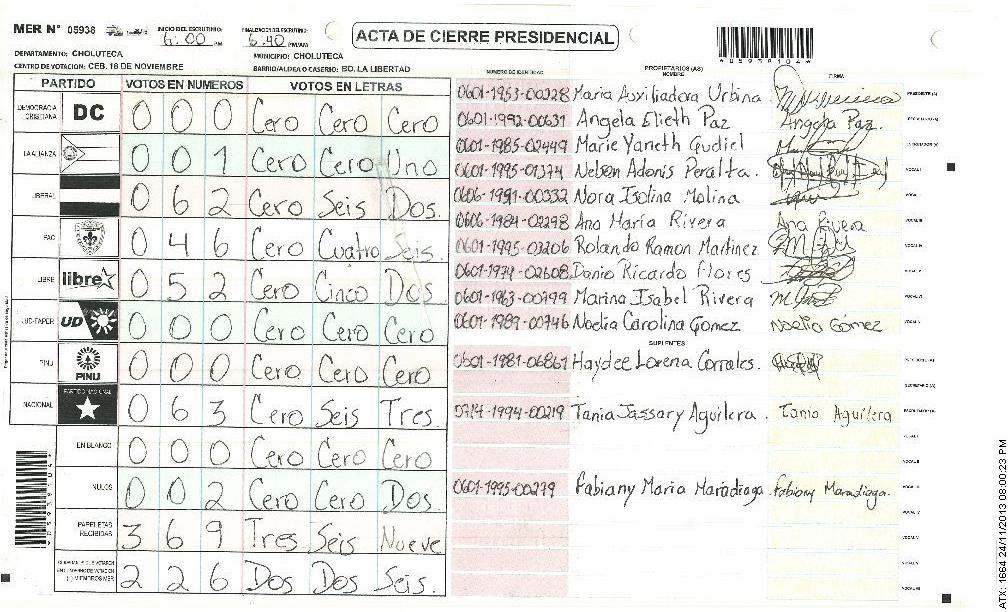 MER Nº 05938 INICIO DEL ESCRUTINIO: 6:00 PM FINALIZACION DEL ESCRUTINIO: 6:40 PM/AM ACTA DE CIERRE PRESIDENCIAL
DEPARTAMENTO: CHOLUTECA MUNICIPIO: CHOLUTECA
CENTRO DE VOTACION: CEB. 18 DE NOVIEMBRE BARRIO/ALDEA O CASERIO: BO. LA LIBERTAD
PARTIDO VOTOS EN NUMEROS VOTOS EN LETRAS
DEMOCRACIA CRISTIANA DC 0 0 0 Cero Cero Cero
LA ALIANZA 0 0 1 Cero Cero Uno
LIBERAL 0 6 2 Cero Seis Dos.
FAC 0 4 6 Cero Cuatro Seis.
LIBRE libre 0 5 2 Cero Cinco Dos
UD-FAPER UD 0 0 0 Cero Cero Cero
PINU PINU 0 0 0 Cero Cero Cero
NACIONAL PARTIDO NACIONAL 0 6 3 Cero Seis Tres.
EN BLANCO 0 0 0 Cero Cero Cero
NULOS 0 0 2 Cero Cero Dos.
PAPELETAS RECIBIDAS 3 6 9 Tres Seis Nueve
2 2 6 Dos Dos Seis.
NUMERO DE IDENTIDAD PROPIETARIOS (AS) NOMBRE FIRMA
0601-1953-00228 Maria Auxiliadora Urbina PRESIDENTE (A)
0601-1992-00631 Angela Elieth Paz Angela Paz.
0601-1985-02449 Marie Yaneth Gudiel
0601-1995-01374 Nelson Adonis Peralta. VOCAL I
0606-1991-00332 Nora Isolina Molina
0606-1984-02298 Ana Maria Rivera Ana Rivera
0601-1995-03206 Rolando Ramon Martinez
0601-1974-02608 Danio Ricardo Flores
0601-1963-00999 Marina Isabel Rivera
0601-1989-00746 Noelia Carolina Gomez Noelia Gómez
SUPLENTES
0601-1981-06867 Haydee Lorena Corrales. PRESIDENTE (A)
SECRETARIO (A)
0714-1994-00219 Tania Jassary Aguilera. Tania Aguilera ESCRUTADOR (A)
VOCAL I
VOCAL II
0601-1995-00279 Fabiany Maria Maradiaga. Fabiany Maradiaga.
ATX: 1664 24/11/2013 08:00:23 PM